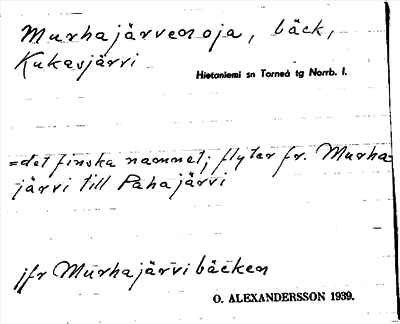 Murhajärvenoja, bäck,
Kukasjärvi
Hietaniemi sn Torneå tg Norrb. l.
=det finska namnet; flyter fr. Murha-
järvi till Pahajärvi
jfr Murhajärvibäcken
O. ALEXANDERSSON 1939.